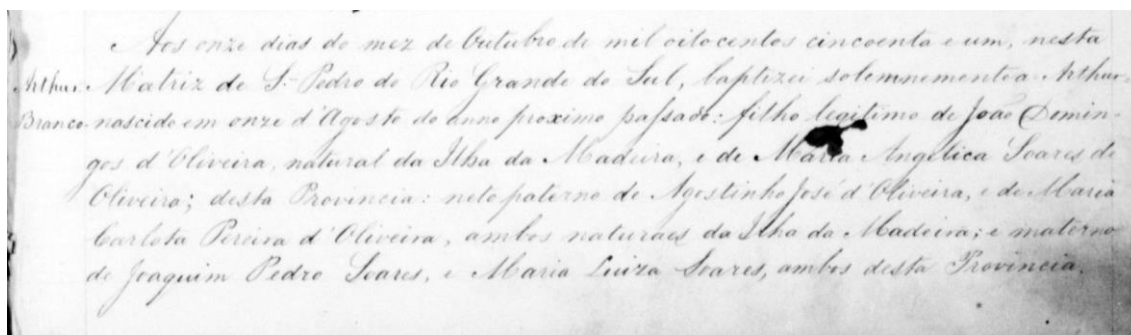 Aos onze dias do mez de Outubro de mil oitocentos cincoenta e um, nesta
Arthur. Matriz de S. Pedro do Rio Grande do Sul, baptizei solemnemente a Arthur,
Branco. nascido em onze d'Agosto do anno proximo passado: filho legitimo de João Domin-
gos d'Oliveira, natural da Ilha da Madeira, e de Maria Angelica Soares de
Oliveira; desta Provincia: neto paterno de Agostinho José d'Oliveira, e de Maria
Carlota Pereira d'Oliveira, ambos naturaes da Ilha da Madeira; e materno
de Joaquim Pedro Soares, e Maria Luiza Soares, ambos desta Provincia.